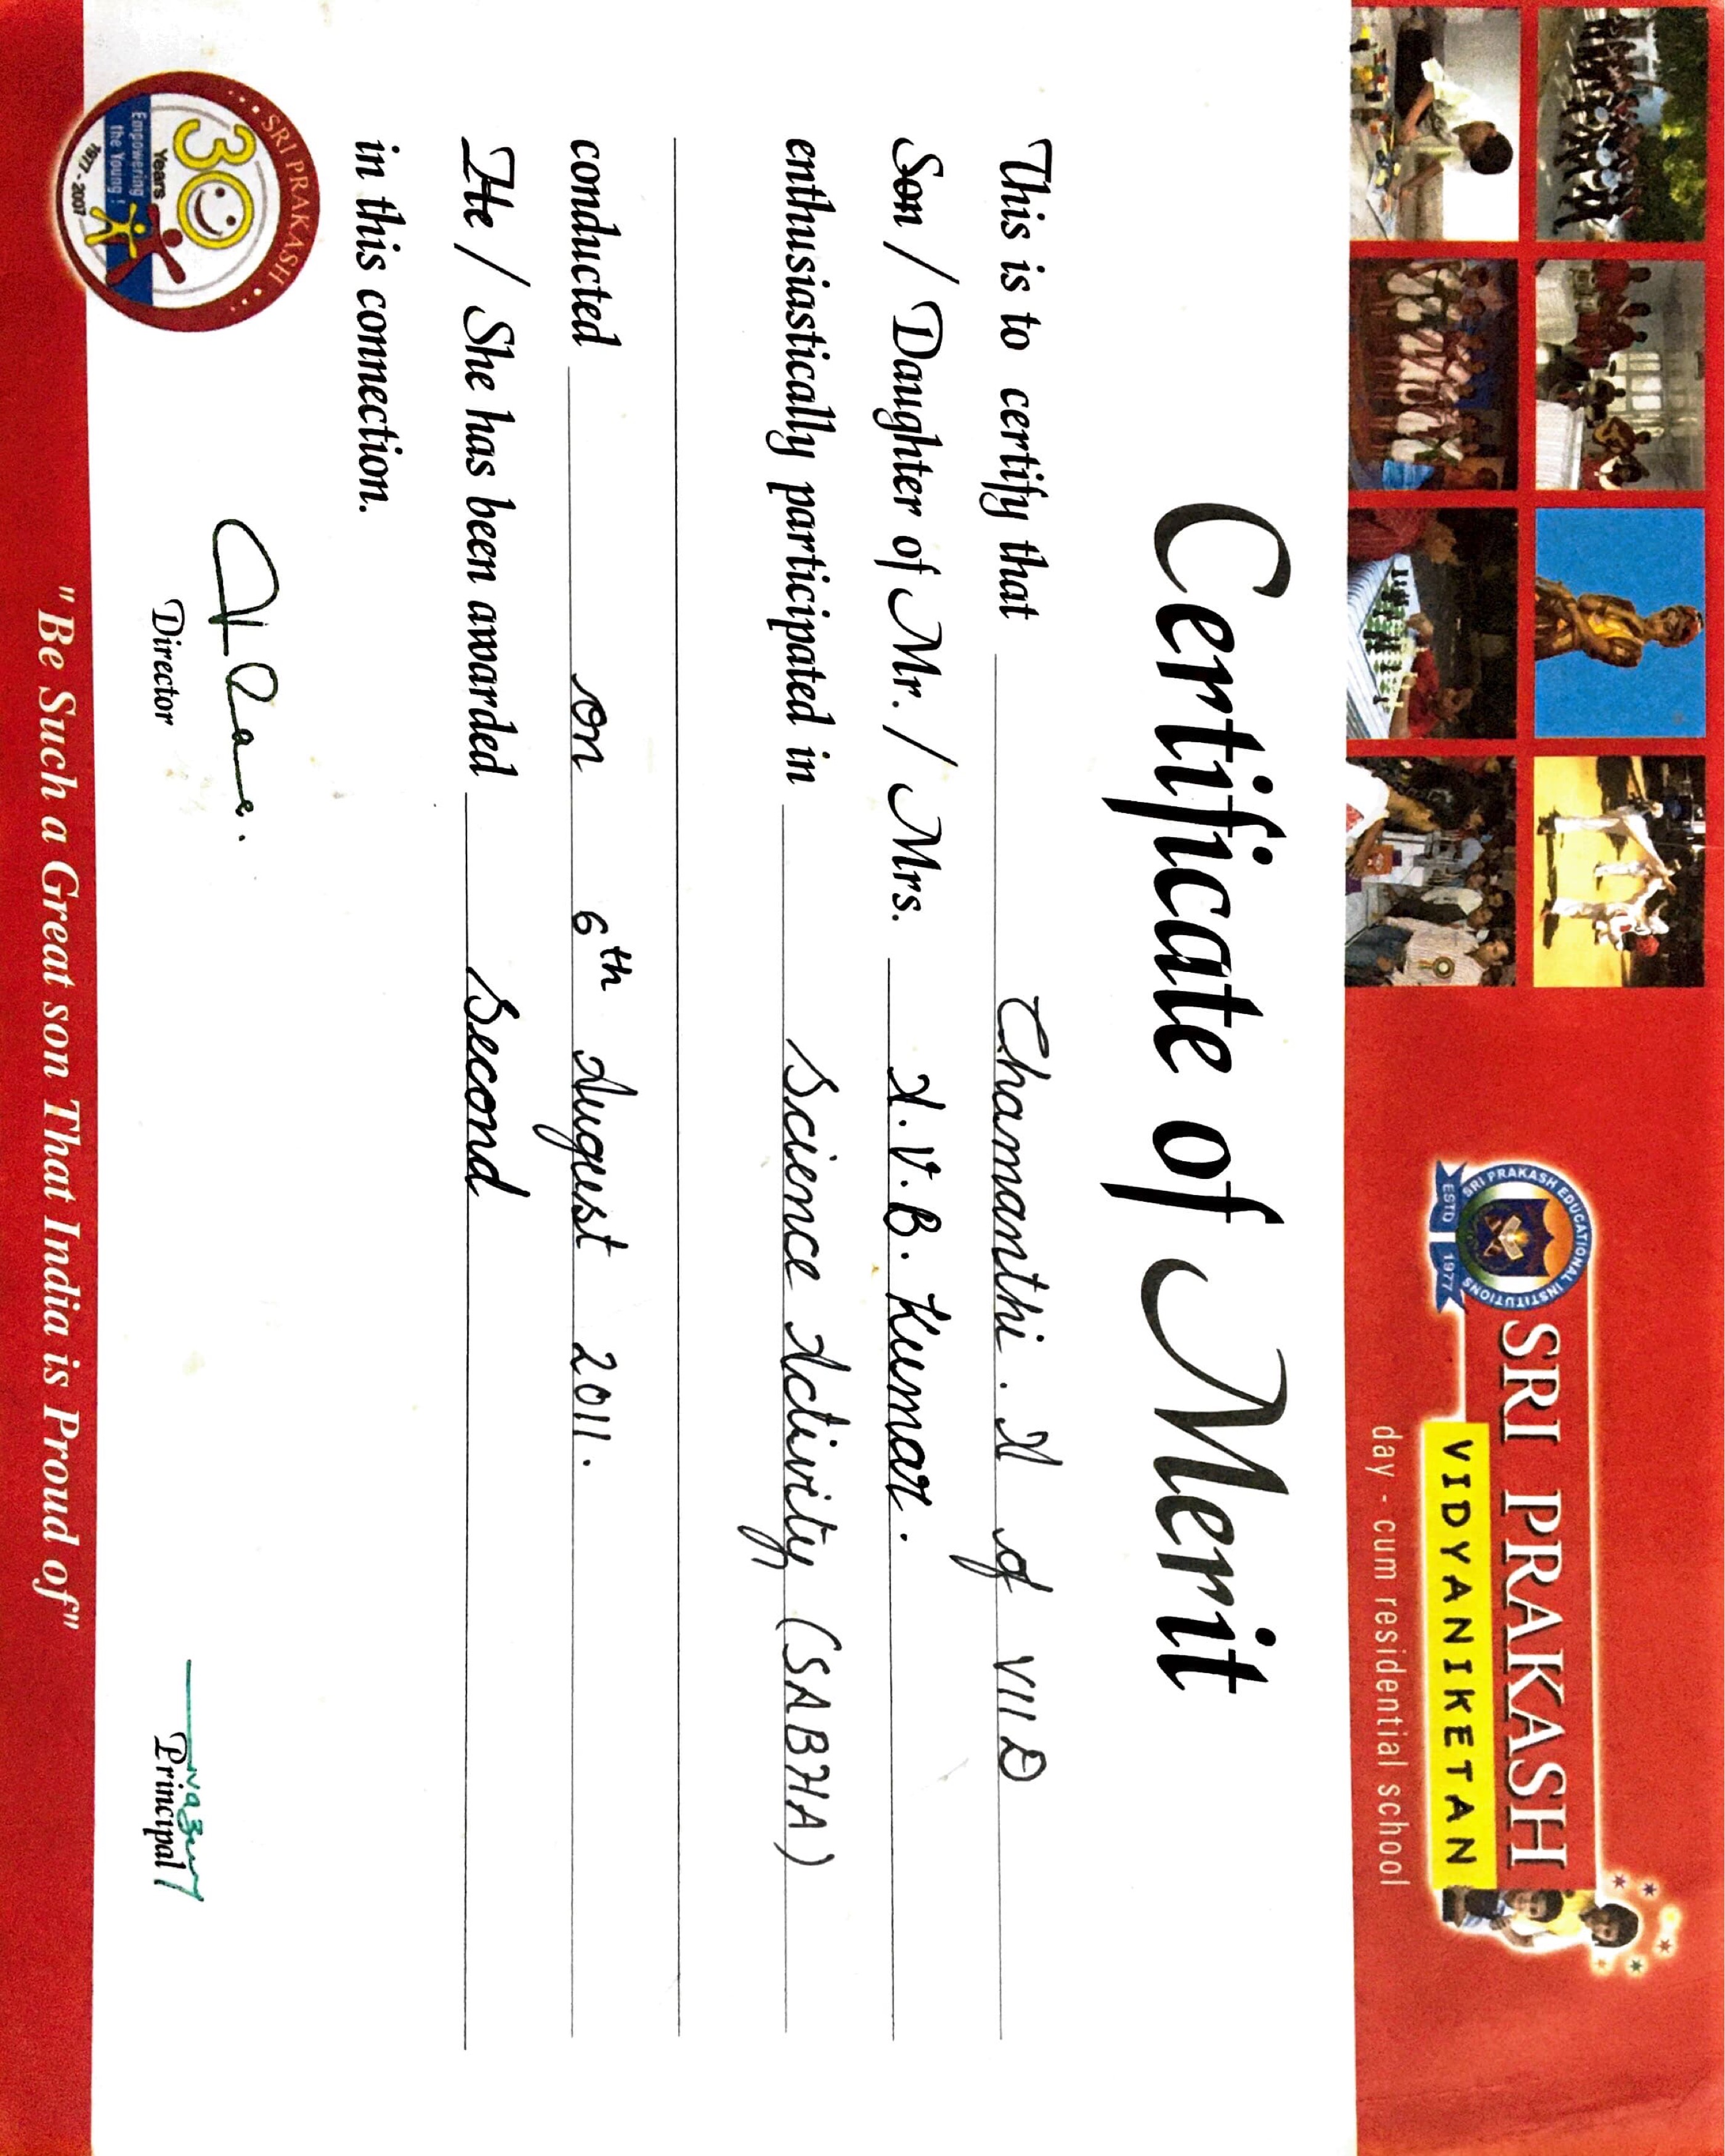 SRI PRAKASH EDUCATIONAL INSTITUTIONS
ESTD 1977
SRI PRAKASH
VIDYANIKETAN
day - cum residential school
Certificate of Merit
This is to certify that Chamanthi . A of VII D
Son / Daughter of Mr. / Mrs. A. V. B. Kumar.
enthusiastically participated in Science Activity (SABHA)
conducted on 6th August 2011.
He / She has been awarded Second
in this connection.
SRI PRAKASH
30
Years
Empowering
the Young !
1977 - 2007
Director
Principal
"Be Such a Great son That India is Proud of"